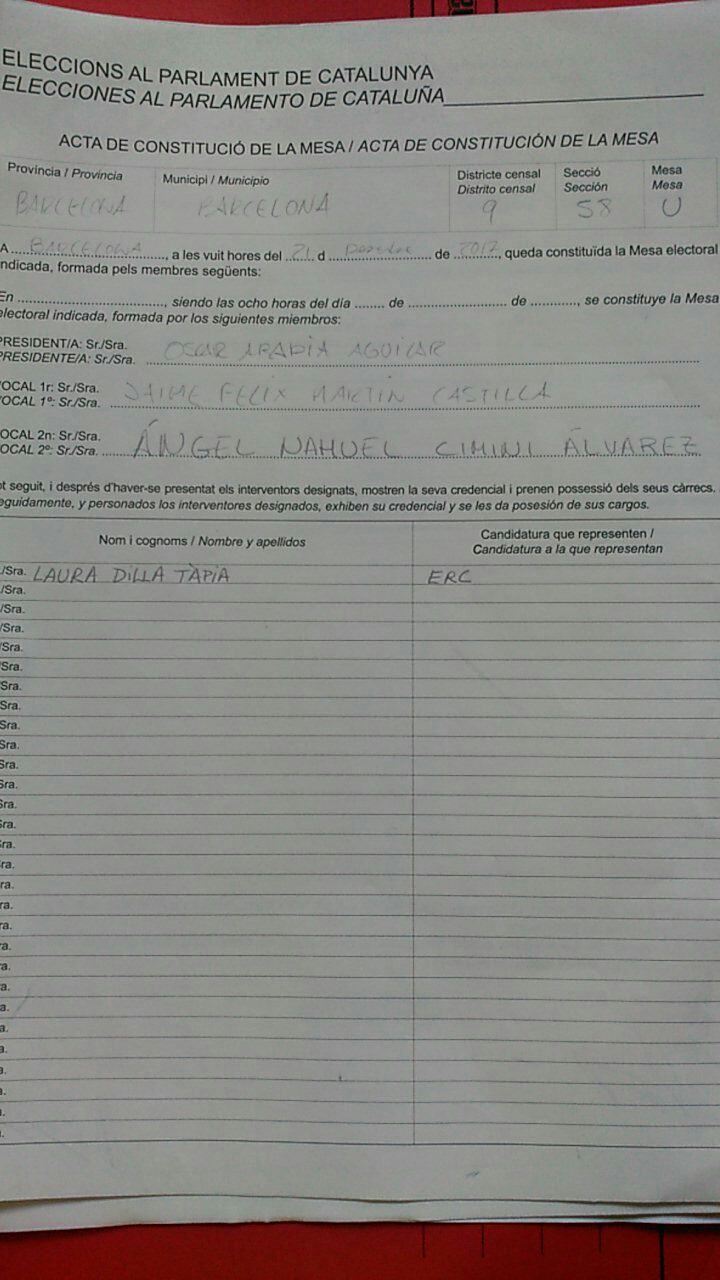 ELECCIONS AL PARLAMENT DE CATALUNYA
ELECCIONES AL PARLAMENTO DE CATALUÑA
ACTA DE CONSTITUCIÓ DE LA MESA / ACTA DE CONSTITUCIÓN DE LA MESA
Provincia / Provincia Municipi / Municipio Districte censal Secció Mesa
Distrito censal Sección Mesa
BARCELONA BARCELONA 9 58 U
A BARCELONA, a les vuit hores del 21 d de 2017, queda constituïda la Mesa electoral
indicada, formada pels membres següents:
En ..............., siendo las ocho horas del día ........ de ............... de ..........., se constituye la Mesa
electoral indicada, formada por los siguientes miembros:
PRESIDENT/A: Sr./Sra.
PRESIDENTE/A: Sr./Sra. OSCAR AGUILAR
VOCAL 1r: Sr./Sra.
VOCAL 1º: Sr./Sra. JAIME FELIX MARTIN CASTILLA
VOCAL 2n: Sr./Sra.
VOCAL 2º: Sr./Sra. ÁNGEL NAHUEL CIMINI ÁLVAREZ
ot seguit, i després d'haver-se presentat els interventors designats, mostren la seva credencial i prenen possessió dels seus càrrecs.
eguidamente, y personados los interventores designados, exhiben su credencial y se les da posesión de sus cargos.
Nom i cognoms / Nombre y apellidos Candidatura que representen /
Candidatura a la que representan
/Sra. LAURA DILLA TÀPIA ERC
/Sra.
/Sra.
/Sra.
/Sra.
/Sra.
/Sra.
Sra.
Sra.
Sra.
Sra.
Sra.
Sra.
Sra.
ra.
ra.
ra.
ra.
ra.
a.
a.
a.
a.
a.
a.
a.
a.